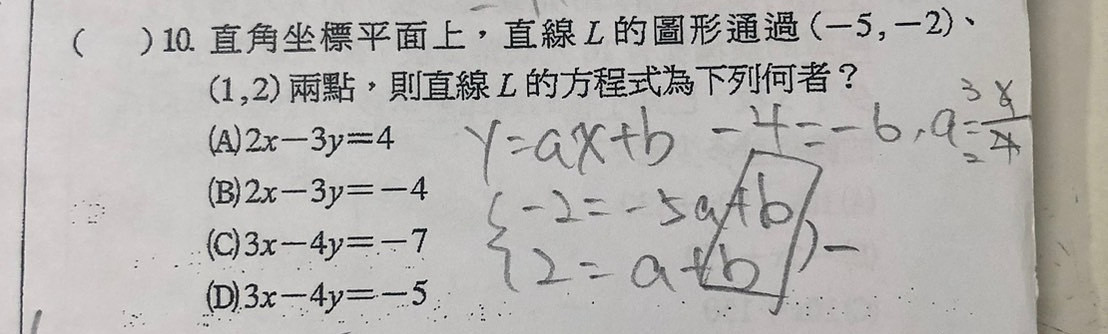 ( )10. 直角坐標平面上，直線 L 的圖形通過 (−5,−2)、
(1,2) 兩點，則直線 L 的方程式為下列何者？
(A) 2x−3y=4
(B) 2x−3y=−4
(C) 3x−4y=−7
(D) 3x−4y=−5
y=ax+b
−4=−6, a=
−2=−5a+b
2=a+b
)−